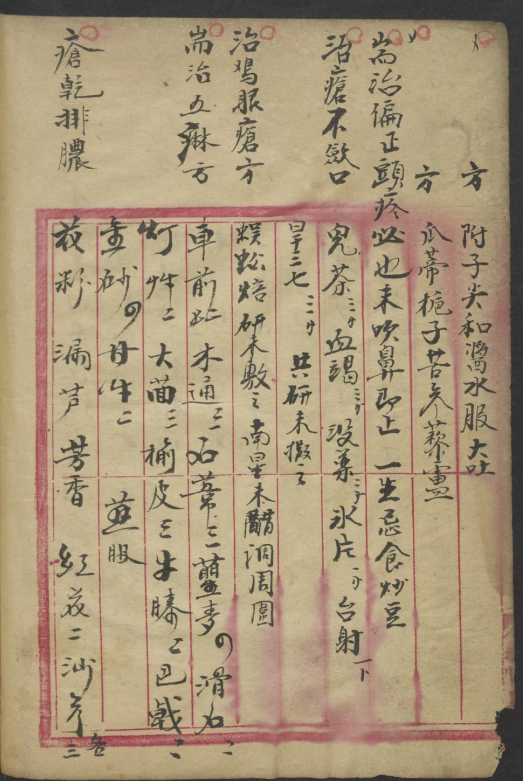 方
附子尖和醬水服大吐
方
瓜蒂梔子苦參藜蘆
耑治偏正頭疼
必也末吹鼻即止 一生忌食炒豆
治瘡不斂口
兒茶三分血竭三分沒藥三分氷片一分台射一下
旱三七三分 共研末撒之
治鳴眼瘡方
蜈蚣焙研末敷之 南星末醋調周圍
耑治五痳方
車前 木通二 石葦二 萹 滑石二
灯草二 大茴二 榆皮三 牛膝二 巴戟二
金砂 甘草二 煎服
瘡乾排膿
花粉 漏芦 芳香 紅花二 沙參三